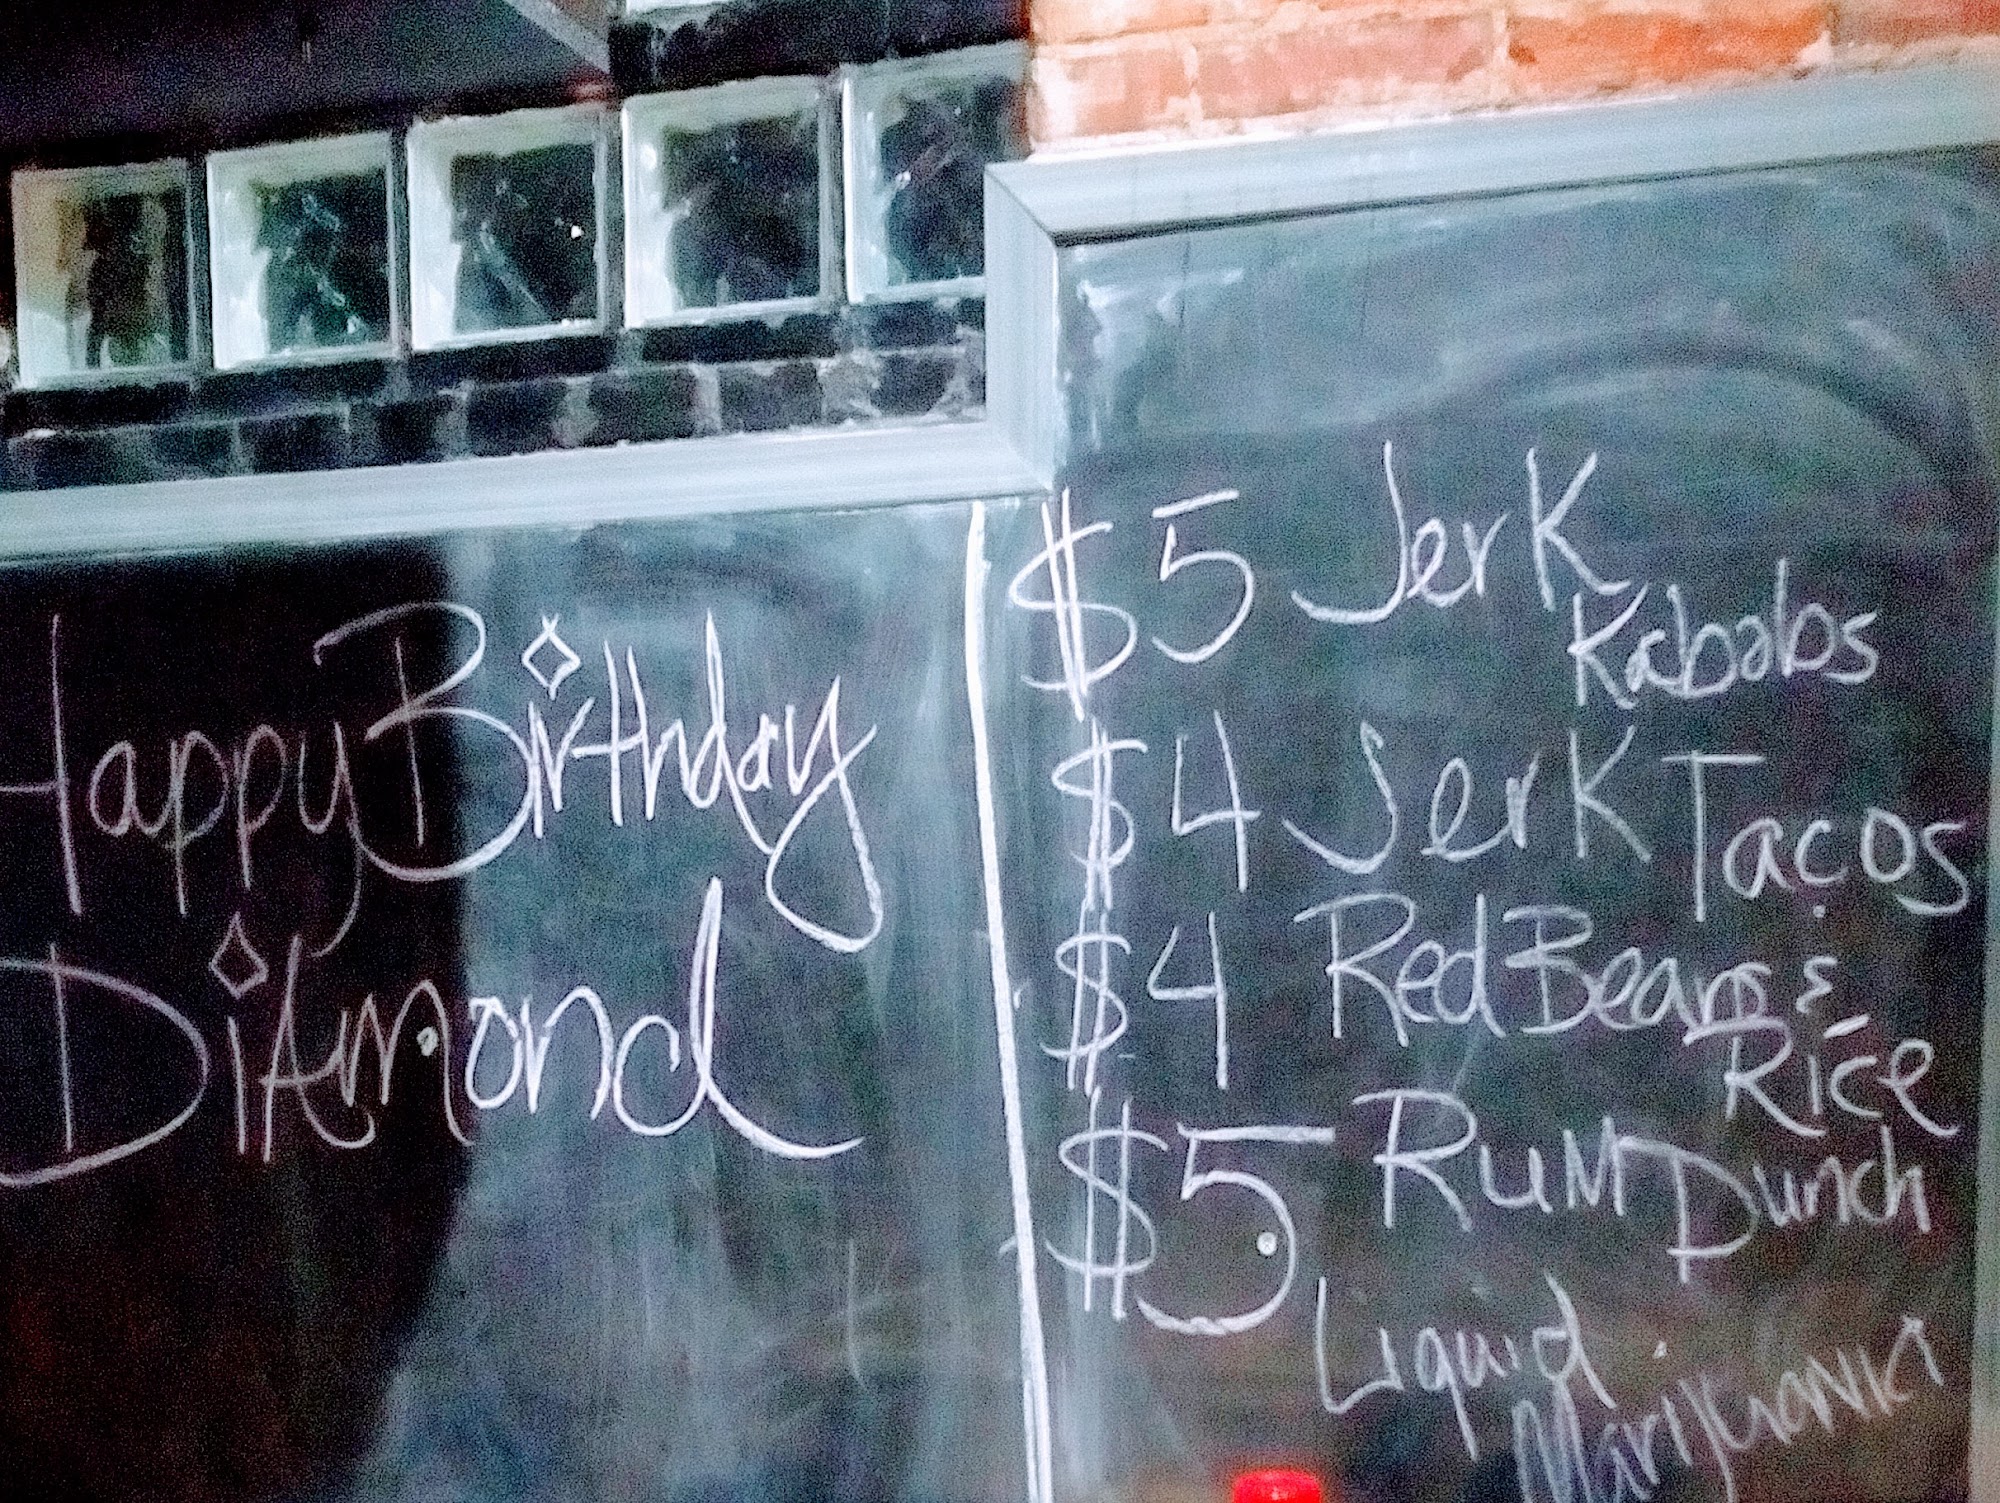 Happy Birthday
Diamond
$5 Jerk
Kababs
$4 Jerk Tacos
$4 Red Beans &
Rice
$5 Rum Punch
Liquid